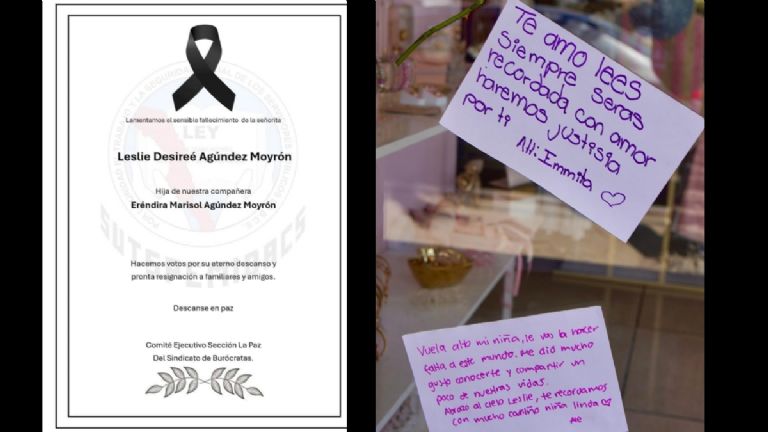 Lamentamos el sensible fallecimiento de la señorita
Leslie Desireé Agúndez Moyrón
Hija de nuestra compañera
Eréndira Marisol Agúndez Moyrón
Hacemos votos por su eterno descanso y
pronta resignación a familiares y amigos.
Descanse en paz
Comité Ejecutivo Sección La Paz
Del Sindicato de Burócratas.
LEY
Te amo lees
siempre seras
recordada con amor
haremos justisia
por ti
Att: Emmila ♡
Vuela alto mi niña, le vas la hacer
falta a este mundo. Me dió mucho
gusto conocerte y compartir un
poco de nuestras vidas.
Abrazo al cielo Leslie, te recordamos
con mucho cariño niña linda